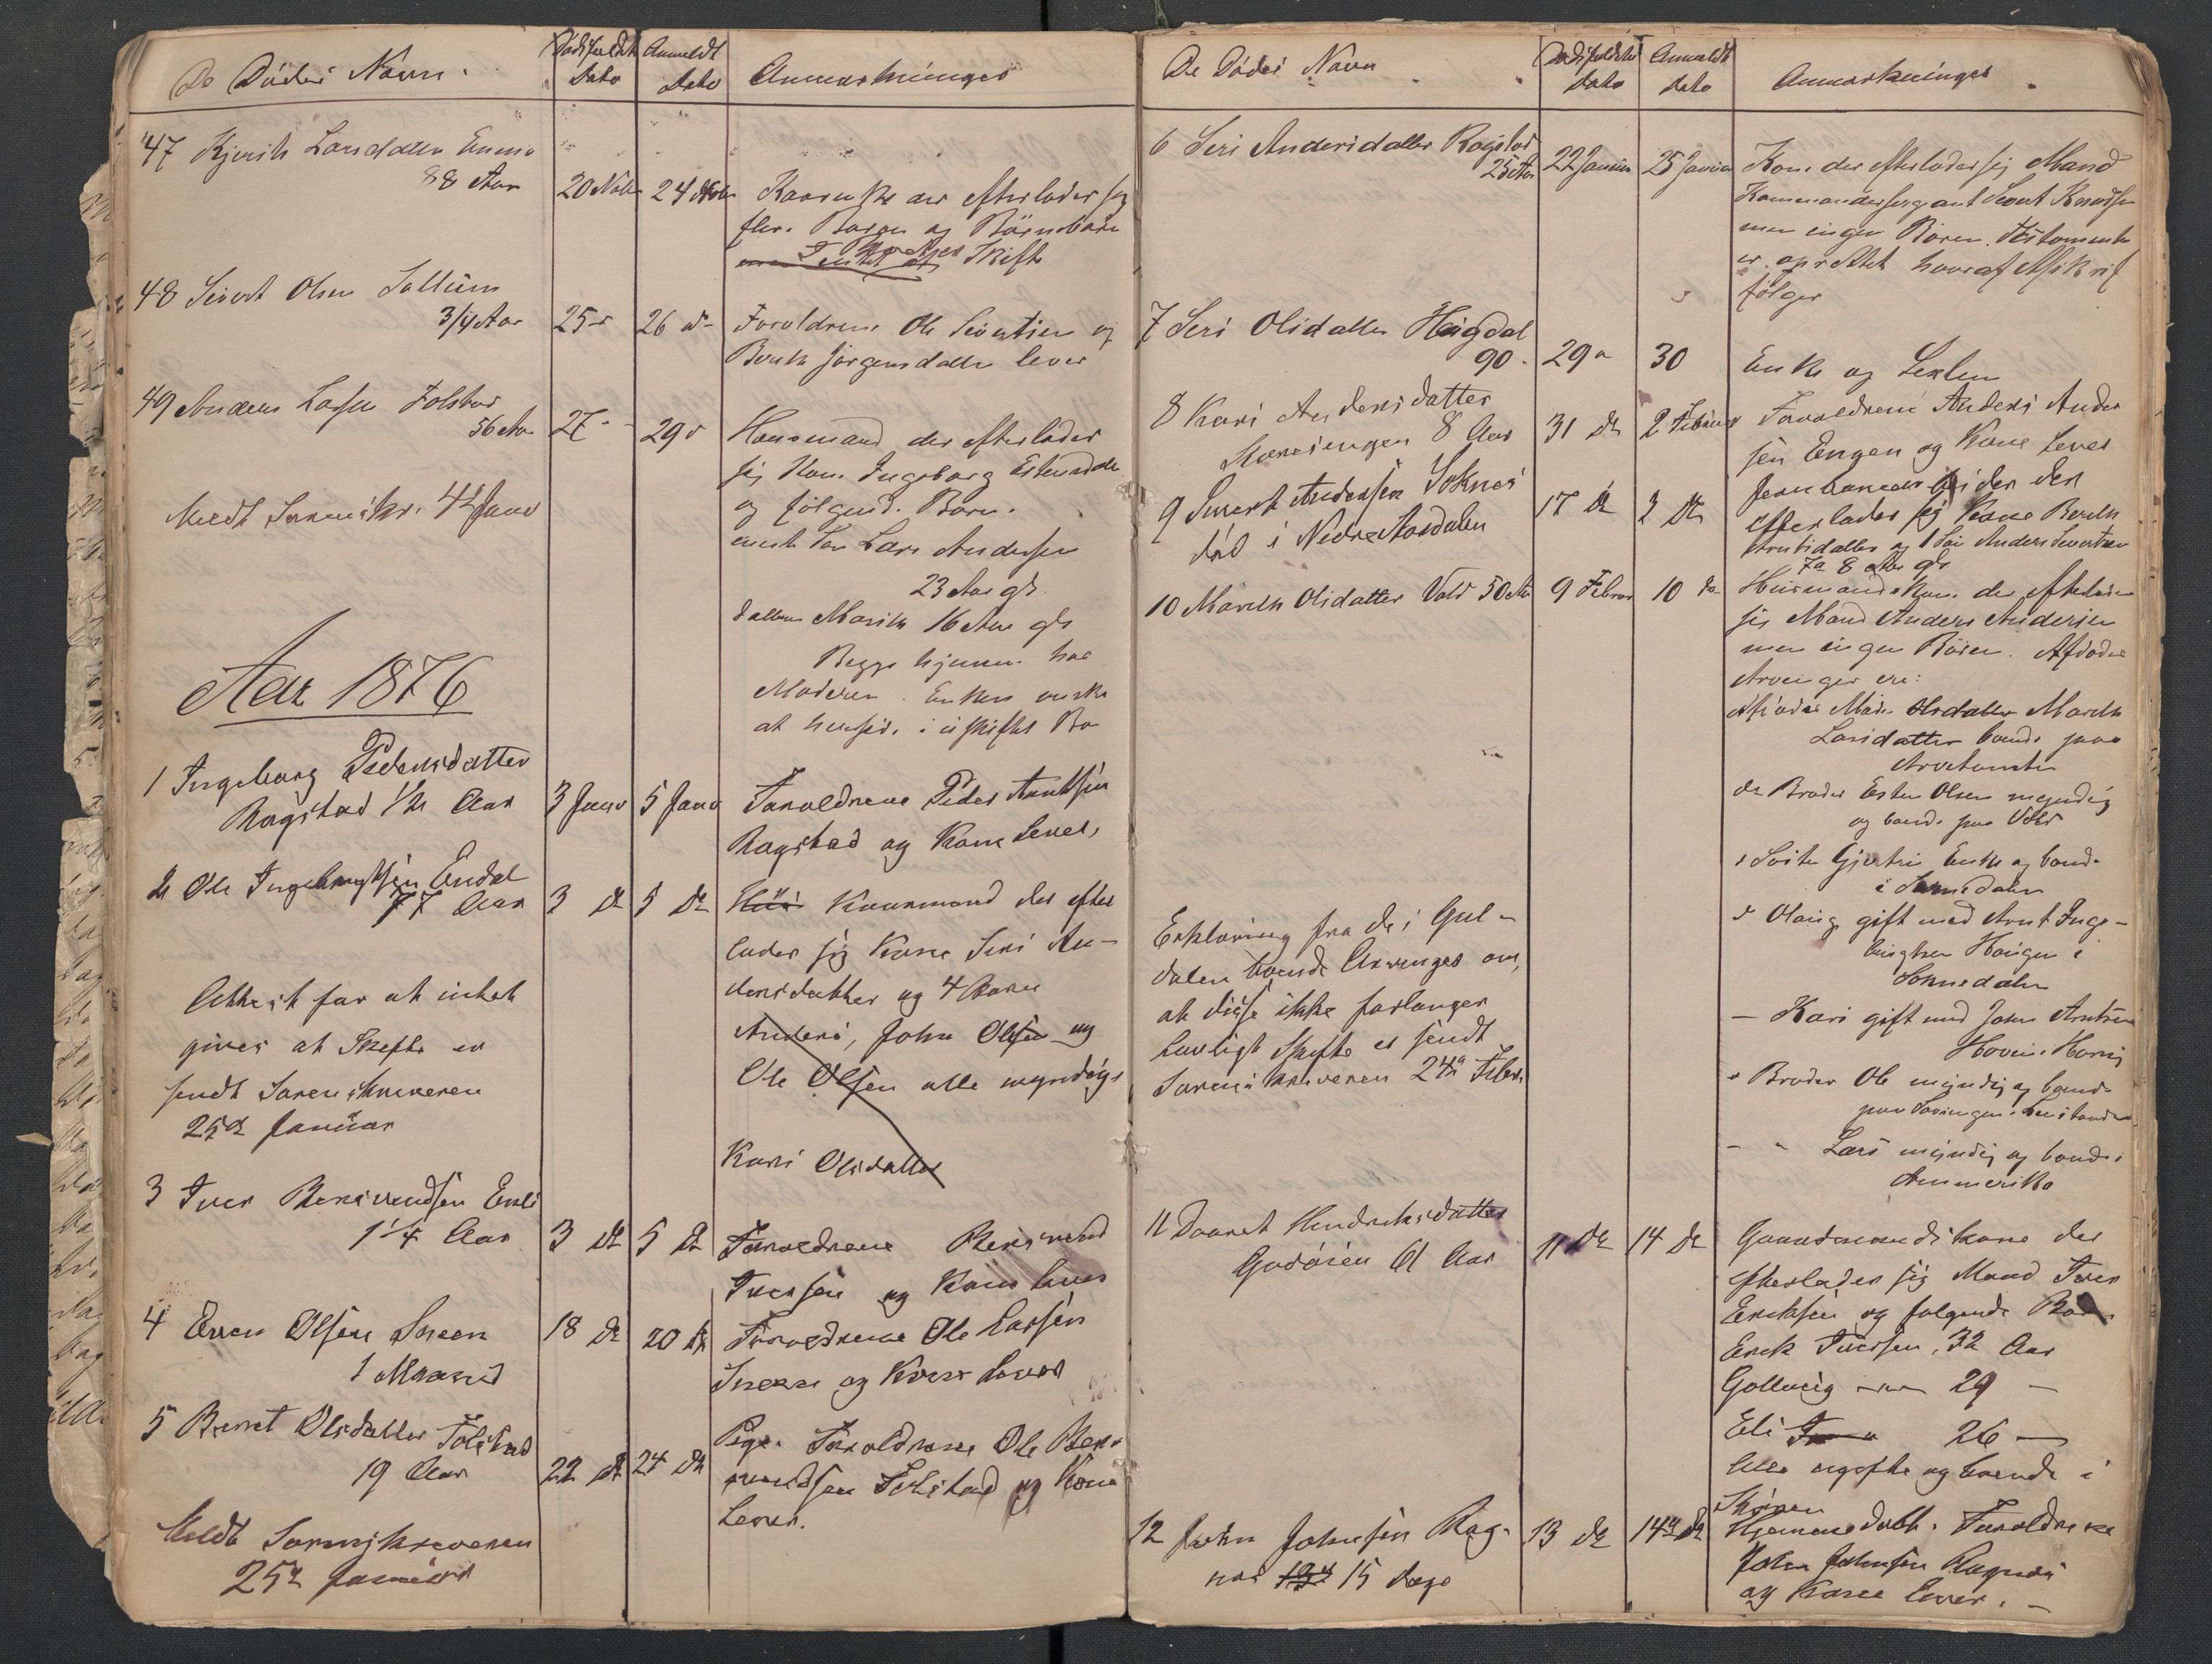 De Dödes Navn.
Dödsfaldets Dato
Anmeldt Dato
Anmærkninger
47 Kjersti Larsdatter
88 Aar
20 Novbr 24 Novbr
Kaarenke der efterlader sig
flere Børn og Børnebørn
Skifte
48 Sivert Olsen Sollium
3/4 Aar
25 d 26 d
Foreldrene Ole Sivertsen og
Berith Jörgensdatter lever
49 Anders Larsen Folstad
56 Aar
27 29 d
Huusmand der efterlader
sig Kone Ingeborg Estensdatter
og følgend. Børn.
Søn Lars Andersen
23 Aar gl
datter Marith 16 Aar gl
Begge hjemme hos
Moderen. Enken ønske
at hensid. i uskiftet Bo
Meldt Sorenskr. 4de Janr
Aar 1876
1 Ingeborg Pedersdatter
Ragstad 1/2 Aar
3 Janr 5 Janr
Foreldrene Peder Arntsen
Ragstad og Kone Lever,
2 Ole Ingebrigtsen Endal
77 Aar
3 d 5 d
Huus Kaarmand der efter
lader sig Kone Siri An-
dersdatter og 4 Børn
Anders, John Olsen og
Ole Olsen alle myndige
Kari Olsdatter
Attest for at intet
gives at Skifte er
sendt Sorenskriveren
25de Januar
3 Iver Bersvendsen Enli
1 1/4 Aar
3 d 5 d
Foreldrene Bersvend
Iversen og Kone Lever
4 Even Olsen Sneen
1 Maaned
18 d 20 d
Foreldrene Ole Larsen
Sneen og Kone Lever
5 Berret Olsdatter Folstad
19 Aar
22 d 24 d
Pige. Foreldrene Ole Bers-
vendsen Folstad og Kone
Lever.
Meldt Sorenskriveren
25de Januar
De Dödes Navn
Dödsfaldets Dato
Anmeldt Dato
Anmærkninger
6 Siri Andersdatter Ragstad
25 Aar
22 Januar 25 Januar
Kone der efterlader sig Mand
Kommandersergant Sivert Knudsen
men ingen Børen. Testamente
er oprettet hvoraf Afskrift
følger
7 Siri Olsdatter Haigdal
90
29 30
Enke og Legslem
8 Kari Andersdatter
8 Aar
31 d 2 Februar
Foreldrene Anders Ander
sen Engen og Kone Lever
9 Sivert Andersen Soknes
död i Nedre Aasdalen
17 d 2 d
Jernbanearbeider der
efterlader sig Kone Berith
Arntsdatter og 1 Søn Anders Sivertsen
7 a 8 Aar gl
10 Marith Olsdatter Vold 50 Aar
9 Februar 10 d
Husmandskone der efterlader
sig Mand Anders Andersen
men ingen Børen. Afdødes
Arvinger ere:
Afdødes Moder Olsdatter Marith
Larsdatter boende paa
Arvetomten
ds Broder Esten Olsen myndig
og boende paa Vold
d Søster Gjertru Enke og boend.
i Soknedalen
d Olaug gift med Arnt Inge-
brigtsen Haugen i
Soknedalen
- Kari gift med John Arntsen
Hovin i Horrig
d Broder Ole myndig og boende
paa
- " Lars myndig og boende i
Ammerika
Erklæring fra de i Gul-
dalen boende Arvinger om,
at disse ikke forlanger
Lovligt Skifte er sendt
Sorenskriveren 24de Febr.
11 Daaret Hendriksdatter
Godøien 61 Aar
11 d 14 d
Gaardmandskone der
efterlader sig Mand Iver
Eriksen og følgende Børn
Erik Iversen, 32 Aar
Gollaug 29 -
Eli 26 -
Alle ugifte og boende i
Skoien
12 John Johnsen Rag-
nes 15 Dage
13 d 14de d
Hjemmedøbt. Foreldrene
John Johnsen Ragnes
og Kone Lever. -